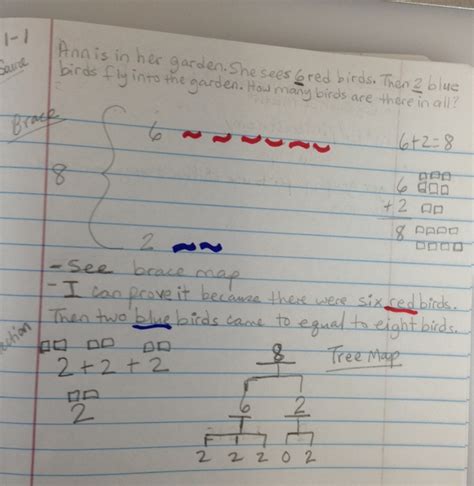 1-1
Ann is in her garden. She sees 6 red birds. Then 2 blue
birds fly into the garden. How many birds are there in all?
Brace
6
6+2=8
8
6
+ 2
8
2
- See brace map
- I can prove it because there were six red birds.
Then two blue birds came to equal to eight birds.
2 + 2 + 2
2
8 Tree Map
6 2
2 2 2 0 2